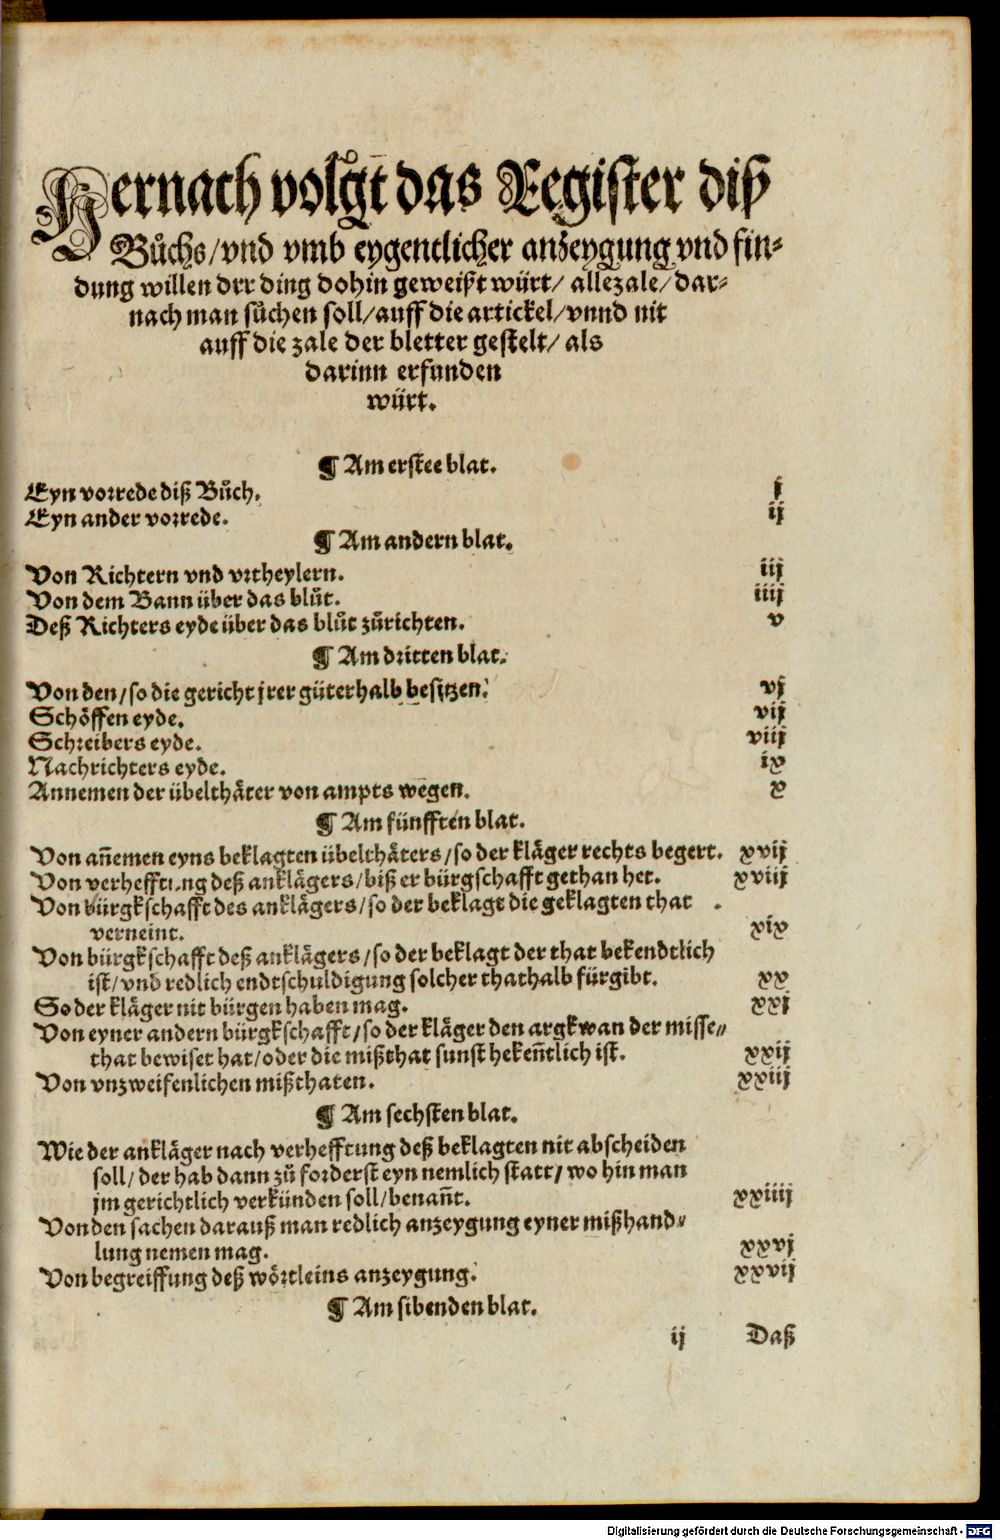 Hernach volgt das Register diß
Bůchs/ vnd vmb eygentlicher anzeygung vnd fin-
dung willen drr ding dohin geweißt würt/ allezale/ dar-
nach man sůchen soll/ auff die artickel/ vnnd nit
auff die zale der bletter gestelt/ als
darinn erfunden
würt.
¶ Am erstee blat.
Eyn vorrede diß Bůch. j
Eyn ander vorrede. ij
¶ Am andern blat.
Von Richtern vnd vrtheylern. iij
Von dem Bann über das blůt. iiij
Deß Richters eyde über das blůt zůrichten. v
¶ Am dritten blat.
Von den/ so die gericht jrer güterhalb besitzen. vj
Schöffen eyde. vij
Schreibers eyde. viij
Nachrichters eyde. ix
Annemen der übelthäter von ampts wegen. x
¶ Am fünfften blat.
Von añemen eyns beklagten übelthäters/ so der kläger rechts begert. xvij
Von verhefftung deß anklägers/ biß er bürgschafft gethan het. xviij
Von bürgkschafft des anklägers/ so der beklagt die geklagten that
verneint. xix
Von bürgkschafft deß anklägers/ so der beklagt der that bekendtlich
ist/ vnd redlich endtschuldigung solcher thathalb fürgibt. xx
So der kläger nit bürgen haben mag. xxj
Von eyner andern bürgkschafft/ so der kläger den argkwan der misse-
that bewiset hat/ oder die mißthat sunst hekeñtlich ist. xxij
Von vnzweifenlichen mißthaten. xxiij
¶ Am sechsten blat.
Wie der ankläger nach verhefftung deß beklagten nit abscheiden
soll/ der hab dann zů forderst eyn nemlich statt/ wo hin man
jm gerichtlich verkünden soll/ benañt. xxiiij
Von den sachen darauß man redlich anzeygung eyner mißhand-
lung nemen mag. xxvj
Von begreiffung deß wörtleins anzeygung. xxvij
¶ Am sibenden blat.
ij Daß
Digitalisierung gefördert durch die Deutsche Forschungsgemeinschaft - DFG